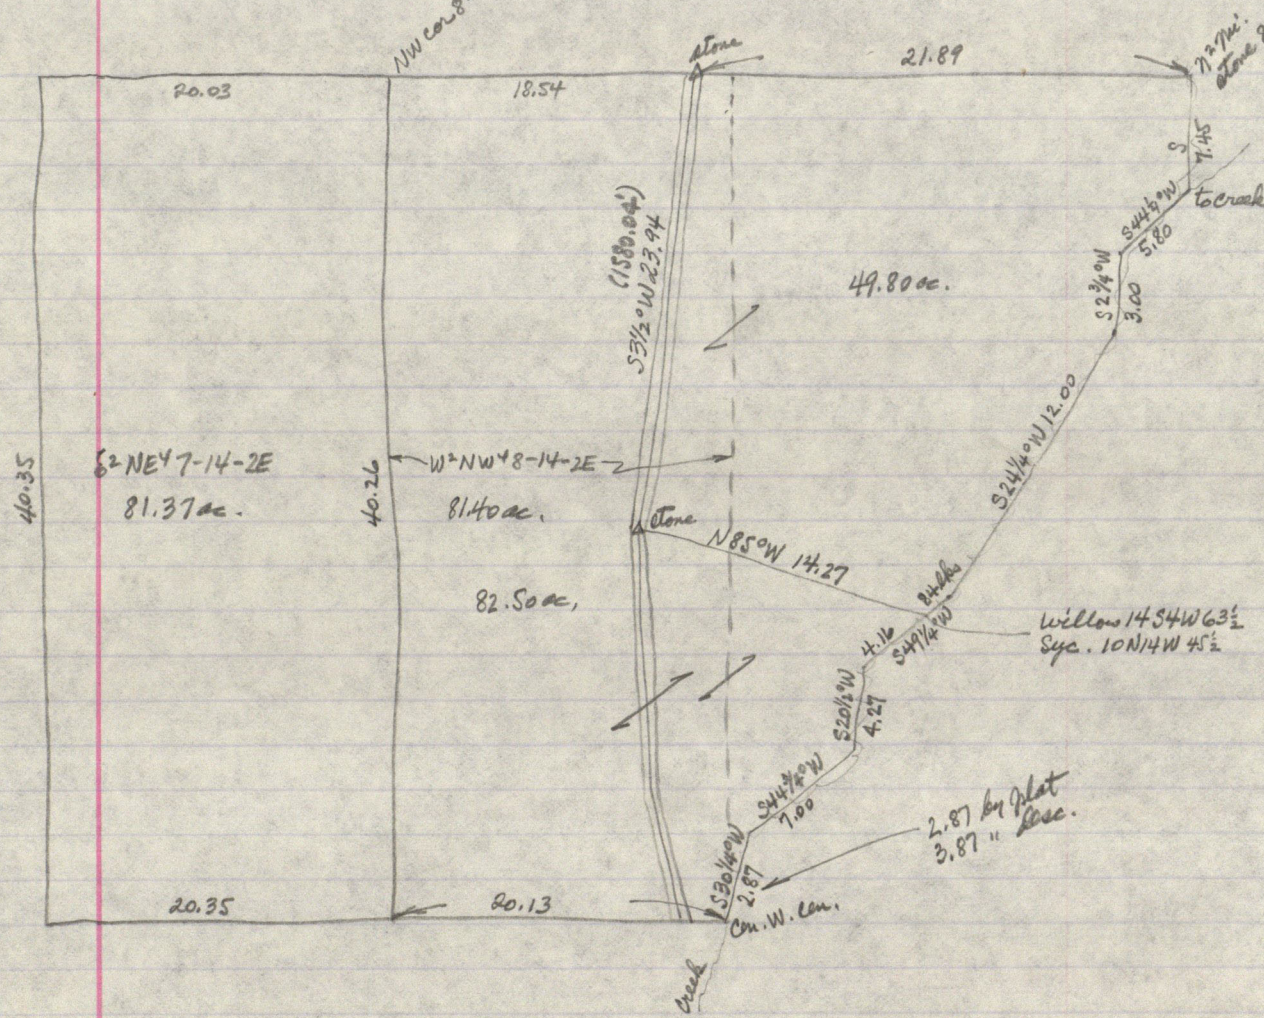 NW cor 8
stone
21.89
N² mi.
stone 8
20.03
18.54
S
7.45
to creek
S44½°W
5.80
(1580.04')
S3½°W 23.94
49.80 ac.
S2¾°W
3.00
S24¼°W 12.00
40.35
E² NE⁴ 7-14-2E
81.37 ac.
40.26
W² NW⁴ 8-14-2E
81.40 ac.
stone
N85°W 14.27
82.50 ac.
84 lks
S49¼°W
4.16
Willow 14 S4W 63½
Syc. 10 N14W 45½
S20½°W
4.27
S44¾°W
7.00
2.87 by plat
3.87 " Desc.
S30¼°W
2.87
20.35
20.13
Cen. W. Cen.
Creek